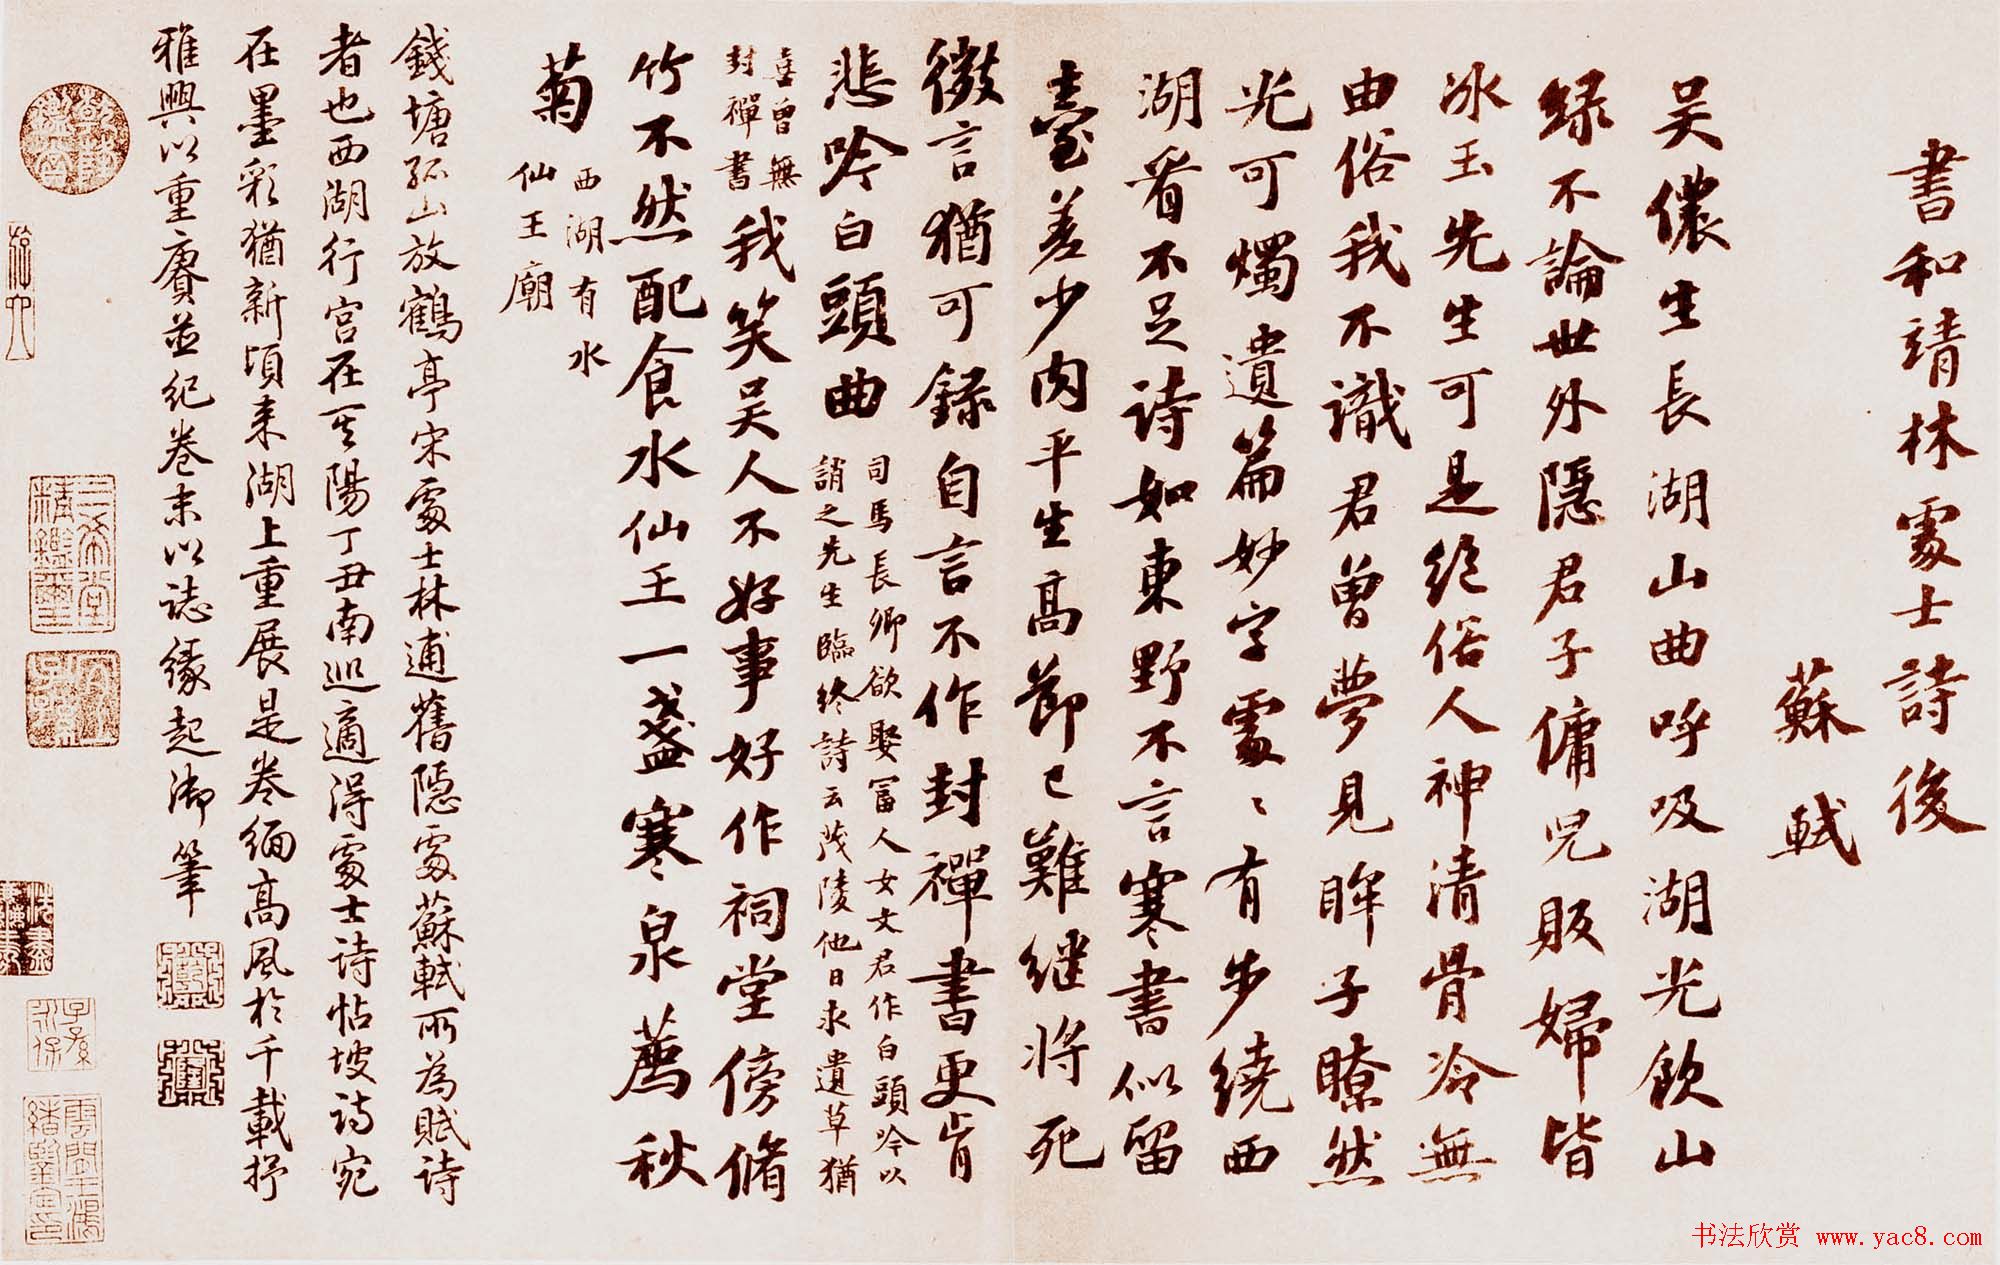 書和靖林處士詩後
蘇軾
吴儂生長湖山曲呼吸湖光飲山
緑不論世外隱君子傭兒販婦皆
冰玉先生可是絕俗人神清骨冷無
由俗我不識君曾夢見眸子瞭然
光可燭遺篇妙字處〻有步繞西
湖看不足詩如東野不言寒書似留
臺差少肉平生高節已難繼將死
微言猶可録自言不作封禪書更肯
悲吟白頭曲
司馬長卿欲娶富人女文君作白頭吟以
誚之先生臨終詩云茂陵他日求遺草猶
喜曾無
封禪書
我笑吴人不好事好作祠堂傍脩
竹不然配食水仙王一盞寒泉薦秋
菊
西湖有水
仙王廟
錢塘孤山放鶴亭宋處士林逋舊隱處蘇軾所為賦詩
者也西湖行宮在其陽丁丑南巡適得處士詩帖坡詩宛
在墨彩猶新頃来湖上重展是卷緬高風於千載抒
雅興以重賡並紀卷末以誌緣起御筆
三希堂
精鑑璽
宜子孫
子孫
永保
书法欣赏 www.yac8.com